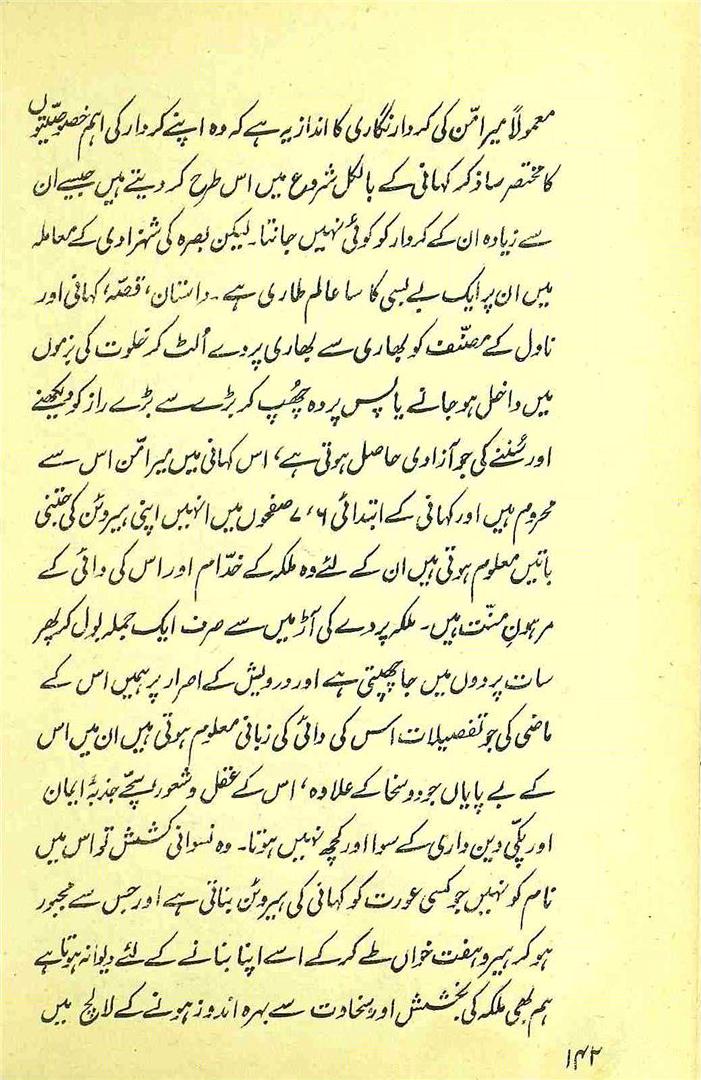 معمولاً میرامّن کی کردار نگاری کا انداز یہ ہے کہ وہ اپنے کردار کی اہم خصوصیّتوں
کا مختصر سا ذکر کہانی کے بالکل شروع میں اس طرح کر دیتے ہیں جیسے ان
سے زیادہ ان کے کردار کو کوئی نہیں جانتا۔ لیکن بصرہ کی شہزادی کے معاملہ
میں ان پر ایک بے بسی کا سا عالم طاری ہے۔ داستان، قصّہ، کہانی اور
ناول کے مصنّف کو بھاری سے بھاری پردے اُلٹ کر خلوت کی بزموں
میں داخل ہو جانے یا پسِ پردہ چھُپ کر بڑے سے بڑے راز کو دیکھنے
اور سُننے کی جو آزادی حاصل ہوتی ہے، اس کہانی میں میرامّن اس سے
محروم ہیں اور کہانی کے ابتدائی ۶،۷ صفحوں میں انہیں اپنی ہیروئن کی جتنی
باتیں معلوم ہوتی ہیں ان کے لئے وہ ملکہ کے خدّام اور اس کی دائی کے
مرہونِ منّت ہیں۔ ملکہ پردے کی آڑ میں سے صرف ایک جملہ بول کر پھر
سات پردوں میں جا چھپتی ہے اور درویش کے اصرار پر ہمیں اس کے
ماضی کی جو تفصیلات اس کی دائی کی زبانی معلوم ہوتی ہیں ان میں اس
کے بے پایاں جود و سخا کے علاوہ، اس کے عقل و شعور، سچّے جذبۂ ایمان
اور پکّی دین داری کے سوا اور کچھ نہیں ہوتا۔ وہ نسوانی کشش تو اس میں
نام کو نہیں جو کسی عورت کو کہانی کی ہیروئن بناتی ہے اور جس سے مجبور
ہو کر ہیرو ہفت خواں طے کر کے اسے اپنا بنانے کے لئے دیوانہ ہوتا ہے
ہم بھی ملکہ کی بخشش اور سخاوت سے بہرہ اندوز ہونے کے لالچ میں
۱۴۲